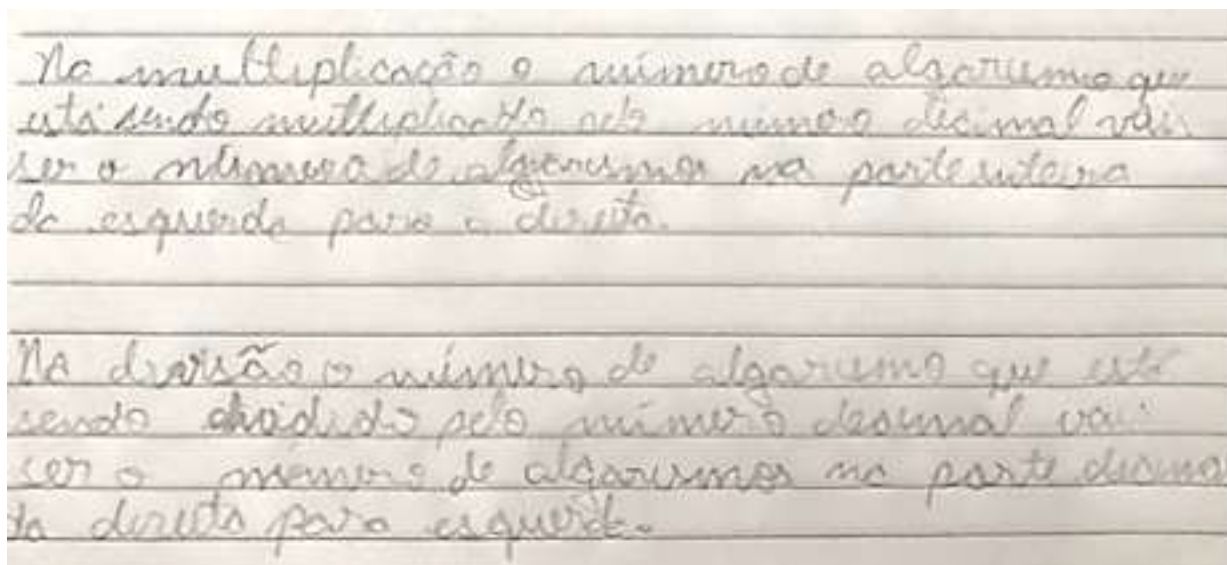 Na multiplicação o número de algarismo que
está sendo multiplicado pelo número decimal vai
ser o número de algarismos na parte inteira
da esquerda para a direita.
Na divisão o número de algarismo que está
sendo dividido pelo número desimal vai
ser o número de algarismos na parte decima
da direita para esquerda.